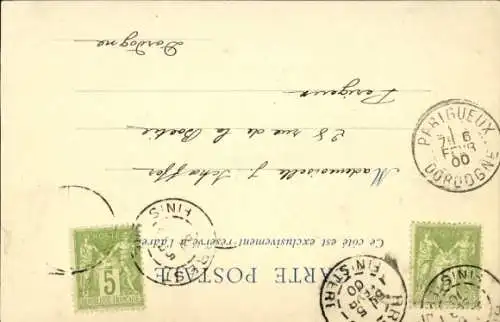 CARTE POSTALE
Ce côté est exclusivement réservé à l'adresse
Mademoiselle J. Schaffer
28 rue de la Boetie
Perigueux
Dordogne
PÉRIGUEUX
6
FEVR
00
DORDOGNE
5
BREST
FINIS
FINISTERE